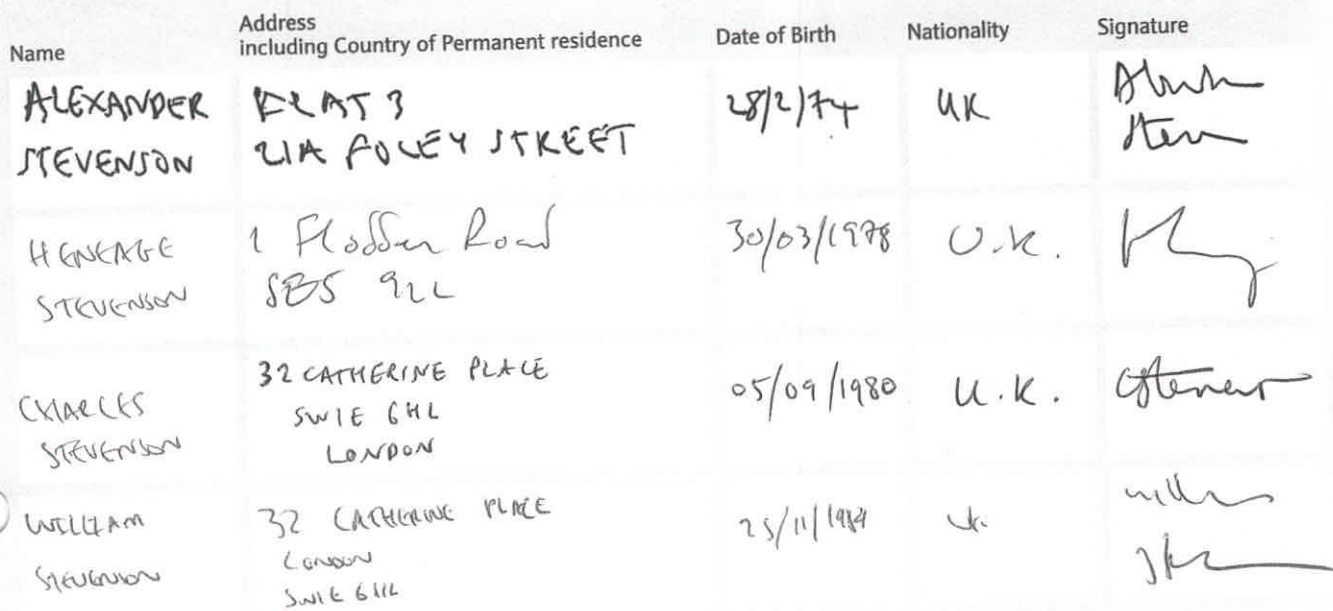 Name Address including Country of Permanent residence Date of Birth Nationality Signature
ALEXANDER STEVENSON
FLAT 3
21A FOLEY STREET
28/2/74
UK
HENEAGE STEVENSON
1 Flodden Road
SE5 9LL
30/03/1978
U.K.
CHARLES STEVENSON
32 CATHERINE PLACE
SW1E 6HL
LONDON
05/09/1980
U.K.
WILLIAM STEVENSON
32 CATHERINE PLACE
LONDON
SW1E 6HL
25/11/1984